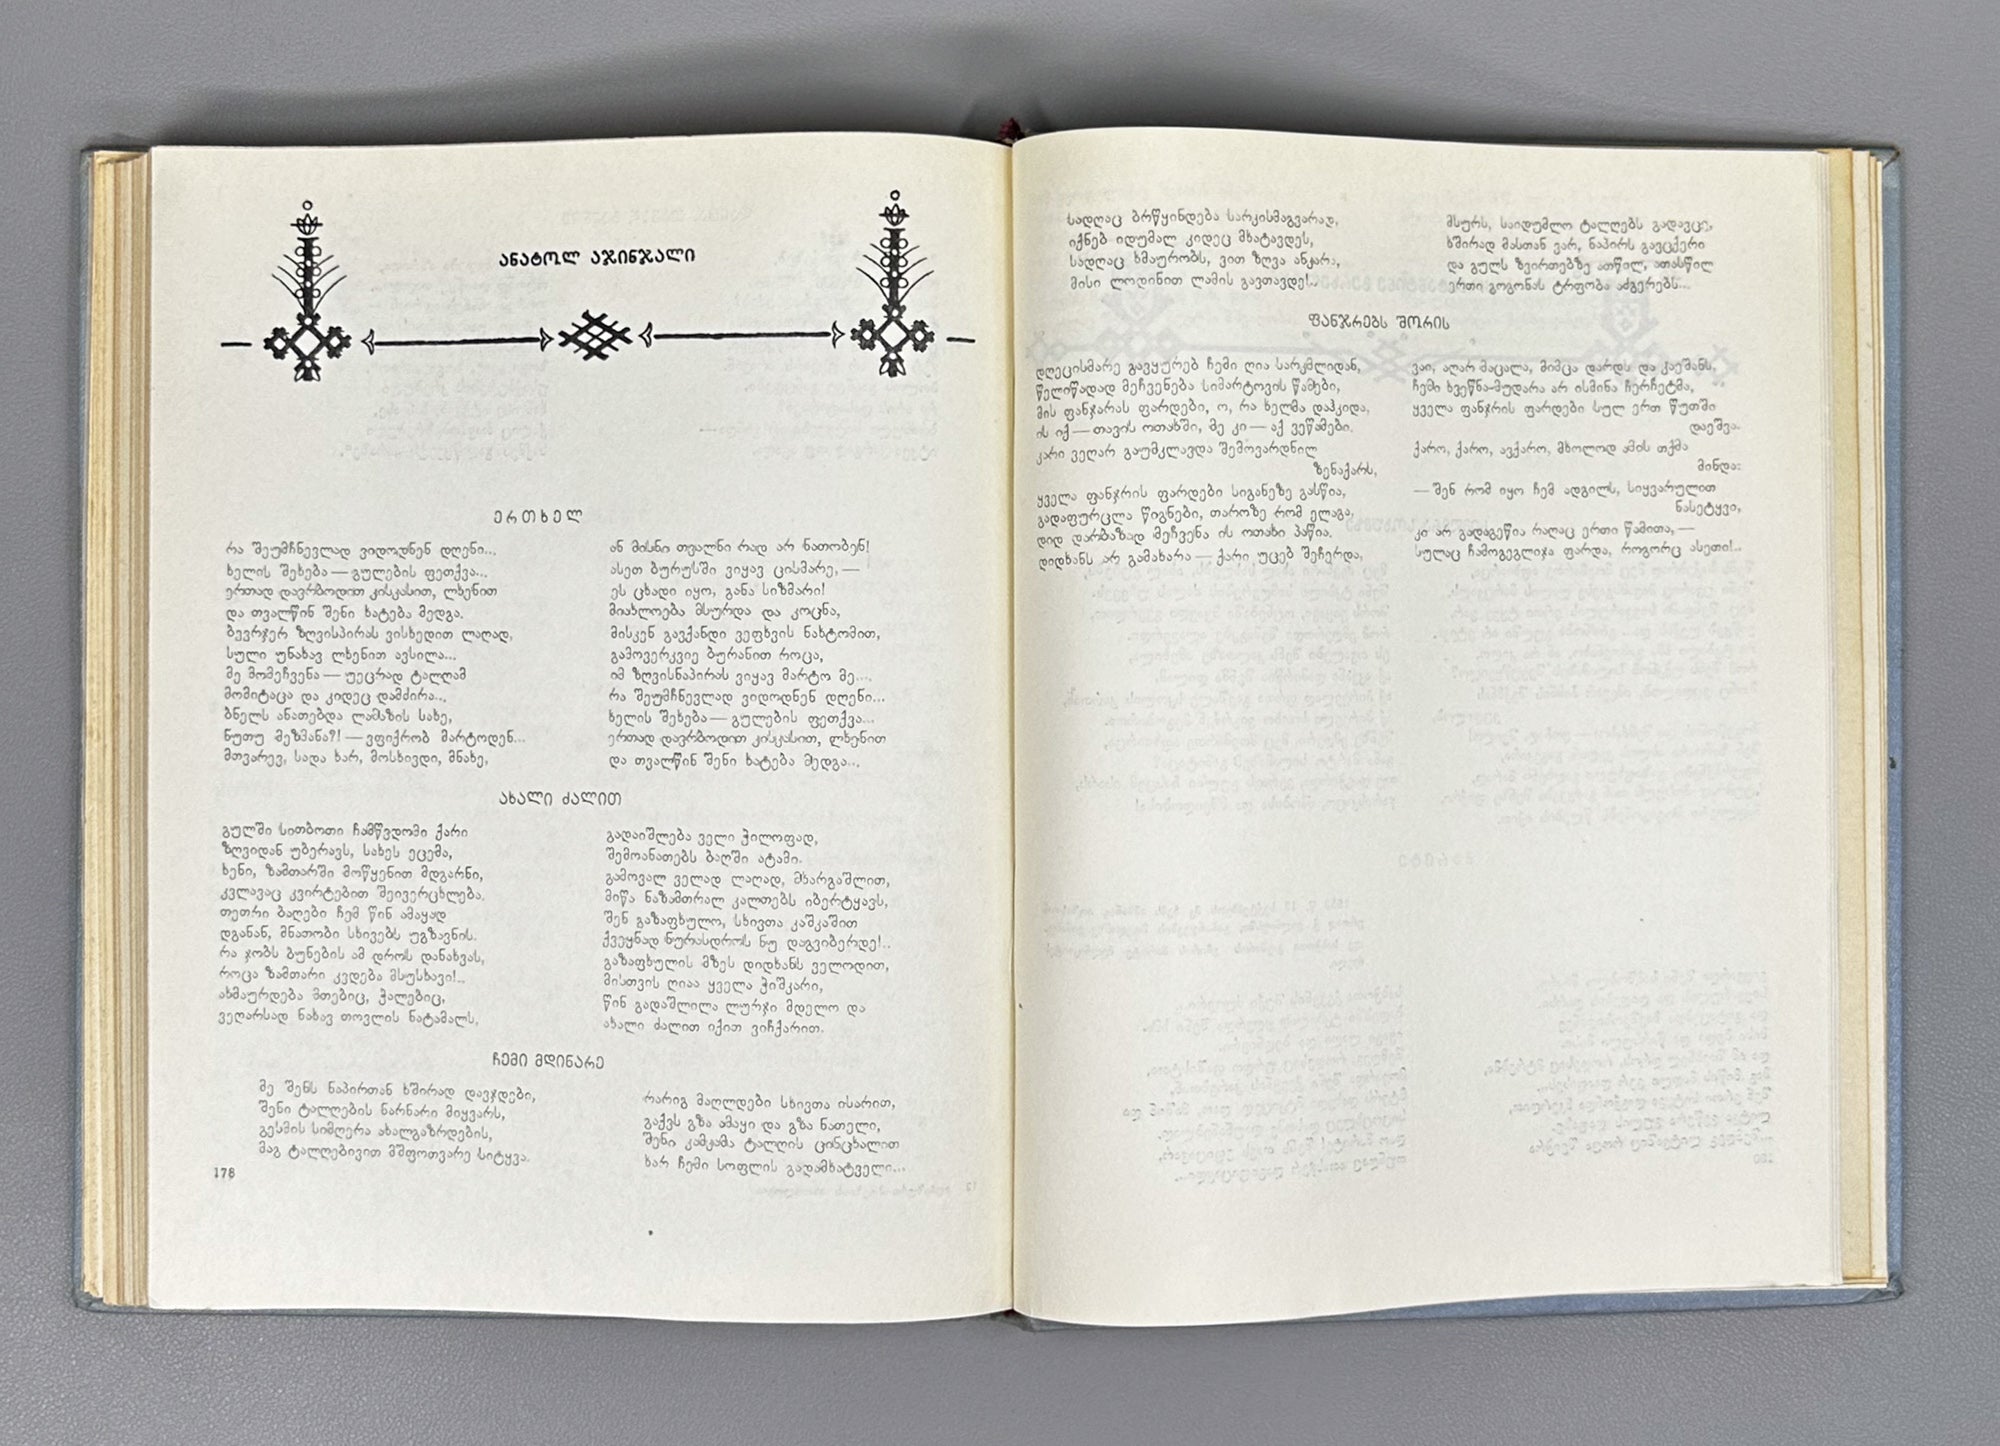 ანატოლ აჯინჯალი
ერთხელ
რა შეუმჩნევლად ვიდოდნენ დღენი...
ხელის შეხება — გულების ფეთქვა...
ერთად დავრბოდით კისკასით, ლხენით
და თვალწინ შენი ხატება მედგა.
ბევრჯერ ზღვისპირას ვისხედით ლაღად,
სული უნახავ ლხენით ავსილა...
მე მომეჩვენა — უეცრად ტალღამ
მომიტაცა და კიდეც დამძირა...
ბნელს ანათებდა ლამაზის სახე,
ნუთუ მეზმანა?! — ვფიქრობ მარტოდენ...
მთვარევ, სადა ხარ, მოსხივდი, მნახე,
ან მისნი თვალნი რად არ ნათობენ!
ასეთ ბურუსში ვიყავ ცისმარე, —
ეს ცხადი იყო, განა სიზმარი!
მიახლოება მსურდა და კოცნა,
მისკენ გავქანდი ვეფხვის ნახტომით,
გამოვერკვიე ბურანით როცა,
იმ ზღვისნაპირას ვიყავ მარტო მე...
რა შეუმჩნევლად ვიდოდნენ დღენი...
ხელის შეხება — გულების ფეთქვა...
ერთად დავრბოდით კისკასით, ლხენით
და თვალწინ შენი ხატება მედგა...
ახალი ძალით
გულში სითბოთი ჩამწვდომი ქარი
ზღვიდან უბერავს, სახეს ეცემა,
ხენი, ზამთარში მოწყენით მდგარნი,
კვლავაც კვირტებით შეივერცხლება.
თეთრი ბაღები ჩემ წინ ამაყად
დგანან, მნათობი სხივებს უგზავნის.
რა ჯობს ბუნების ამ დროს დანახვას,
როცა ზამთარი კვდება მსუსხავი!..
ახმაურდება მთებიც, ჭალებიც,
ვეღარსად ნახავ თოვლის ნატამალს,
გადაიშლება ველი ჭილოფად,
შემოანათებს ბაღში ატამი.
გამოვალ ველად ლაღად, მხარგაშლით,
მიწა ნაზამთრალ კალთებს იბერტყავს,
შენ გაზაფხულო, სხივთა კაშკაშით
ქვეყნად ნურასდროს ნუ დაგვიბერდე!..
გაზაფხულის მზეს დიდხანს ველოდით,
მისთვის ღიაა ყველა ჭიშკარი,
წინ გადაშლილა ლურჯი მდელო და
ახალი ძალით იქით ვიჩქარით.
ჩემი მდინარე
მე შენს ნაპირთან ხშირად დავჯდები,
შენი ტალღების ნარნარი მიყვარს,
გესმის სიმღერა ახალგაზრდების,
მაგ ტალღებივით მშფოთვარე სიტყვა.
რარიგ მაღლდები სხივთა ისარით,
გაქვს გზა ამაყი და გზა ნათელი,
შენი კამკამა ტალღის ცინცხალით
ხარ ჩემი სოფლის გადამხატველი...
178
სადღაც ბრწყინდება სარკისმაგვარად,
იქნებ იდუმალ კიდეც მხატავდეს,
სადღაც ხმაურობს, ვით ზღვა ანკარა,
მისი ლოდინით ლამის გავთავდე!..
მსურს, საიდუმლო ტალღებს გადავცე,
ხშირად მასთან ვარ, ნაპირს გავცქერი
და გულს ზვირთებზე ათწილ, ათასწილ
ერთი გოგონას ტრფობა აძგერებს...
ფანჯრებს შორის
დღეცისმარე გავყურებ ჩემი ღია სარკმლიდან,
წელიწადად მეჩვენება სიმარტოვის წამები,
მის ფანჯარას ფარდები, ო, რა ხელმა დაჰკიდა,
ის იქ — თავის ოთახში, მე კი — აქ ვეწამები.
კარი ვეღარ გაუმკლავდა შემოვარდნილ
ზენაქარს,
ყველა ფანჯრის ფარდები სიგანეზე გასწია,
გადაფურცლა წიგნები, თაროზე რომ ელაგა,
დიდ დარბაზად მეჩვენა ის ოთახი პაწია.
დიდხანს არ გამახარა — ქარი უცებ შეჩერდა,
ვაი, აღარ მაცალა, მიმცა დარდს და კაეშანს,
ჩემი ხვეწნა-მუდარა არ ისმინა ჩერჩეტმა,
ყველა ფანჯრის ფარდები სულ ერთ წუთში
დაეშვა.
ქარო, ქარო, ავქარო, მხოლოდ ამის თქმა
მინდა:
— შენ რომ იყო ჩემ ადგილს, სიყვარულით
ნასეტყვი,
კი არ გადაგეწია რაღაც ერთი წამითა, —
სულაც ჩამოგეგლიჯა ფარდა, როგორც ასეთი!..